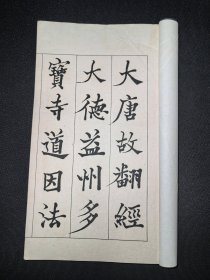 大唐故翻經
大德益州多
寶寺道因法